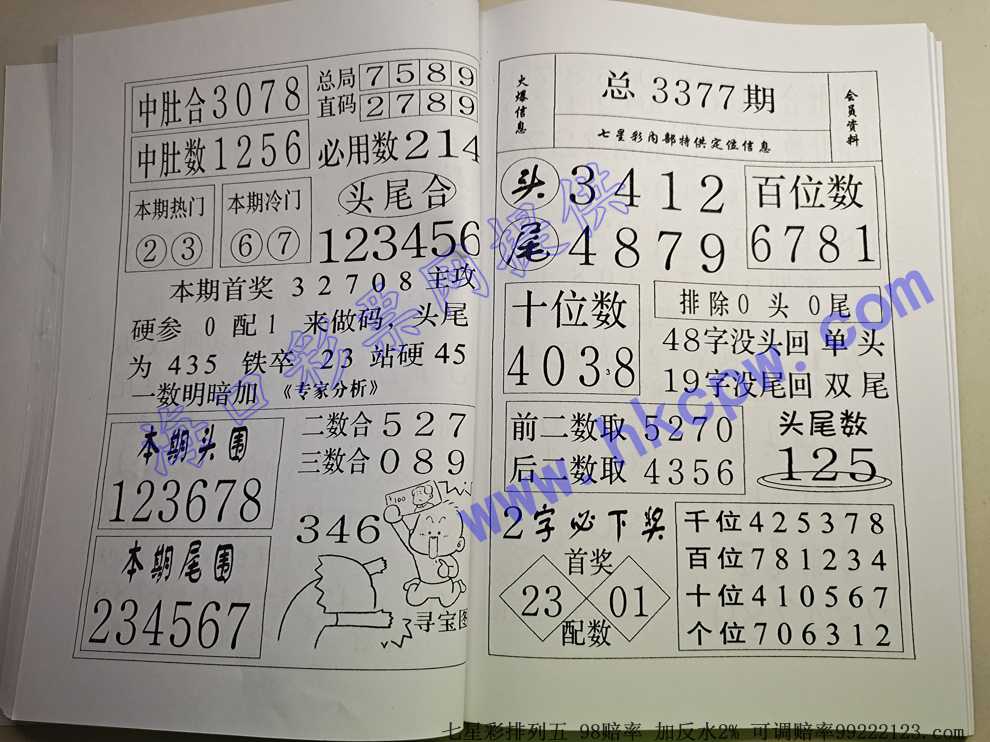 中肚合3078
总局7589
直码2789
中肚数1256
必用数214
本期热门
②③
本期冷门
⑥⑦
头尾合
123456
本期首奖 32708 主攻
硬参 0 配 1 来做码，头尾
为 435 铁卒 23 站硬 45
一数明暗加 《专家分析》
本期头围
123678
二数合527
三数合089
346
本期尾围
234567
寻宝图
火爆信息
总 3377期
七星彩内部特供定位信息
会员资料
头3412
尾4879
百位数
6781
十位数
4038
3
排除0 头 0尾
48字没头回 单 头
19字没尾回 双 尾
前二数取 5270
后二数取 4356
头尾数
125
2字必下奖
首奖
23
01
配数
千位425378
百位781234
十位410567
个位706312
海口彩票网提供
www.hkcpw.com
七星彩排列五 98赔率 加反水2% 可调赔率99222123.com